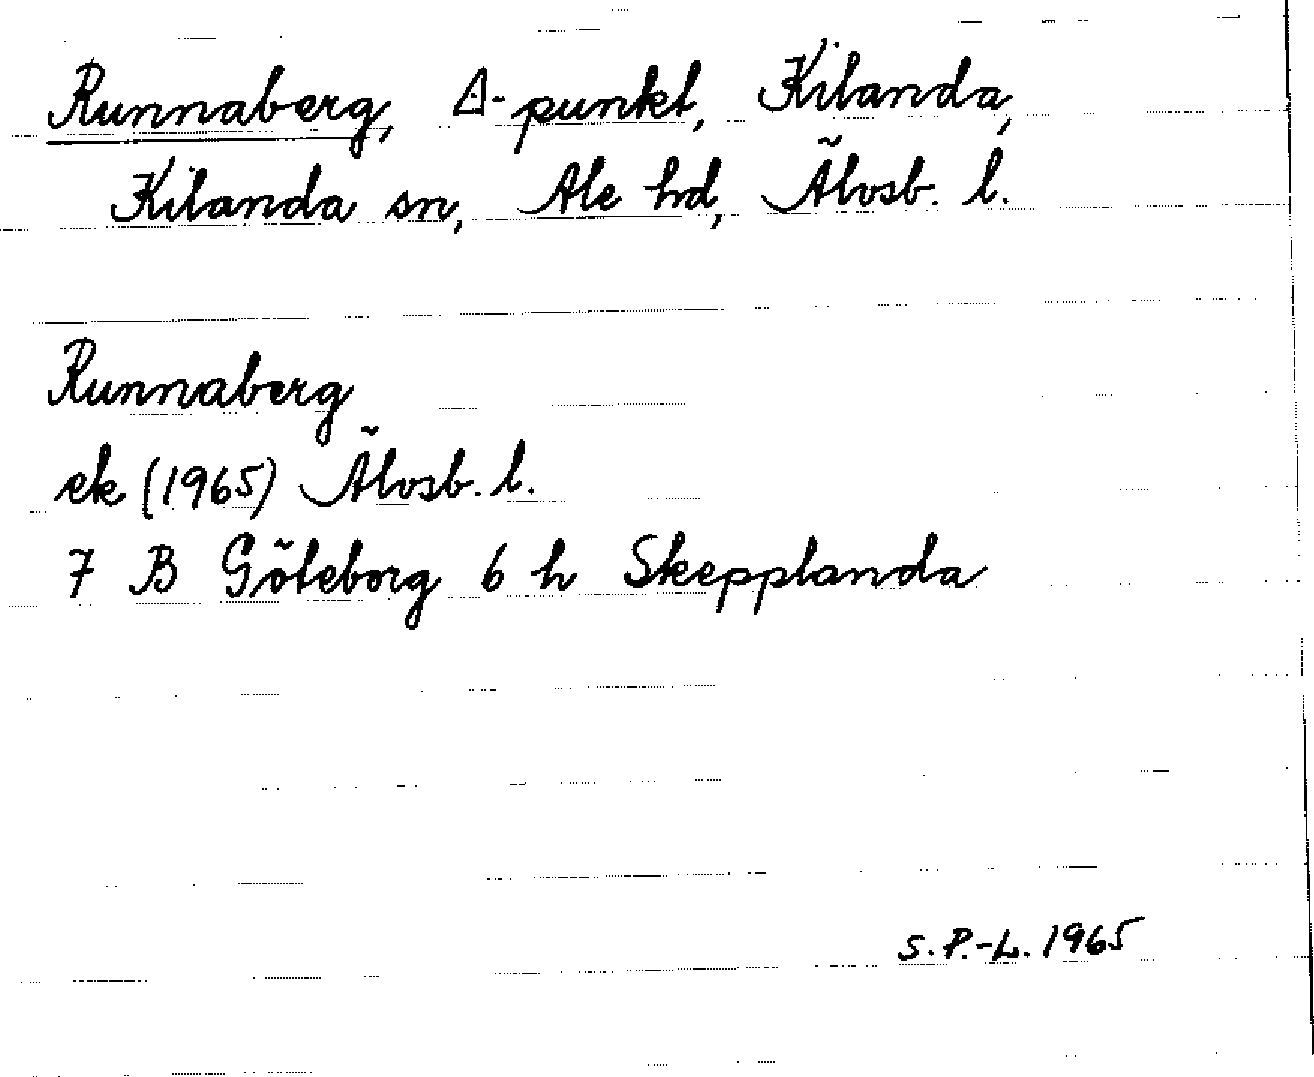 Runnaberg, Δ-punkt, Kilanda,
Kilanda sn, Ale hd, Älvsb. l.
Runnaberg
ek (1965) Älvsb. l.
7 B Göteborg 6 h Skepplanda
S. P.-L. 1965